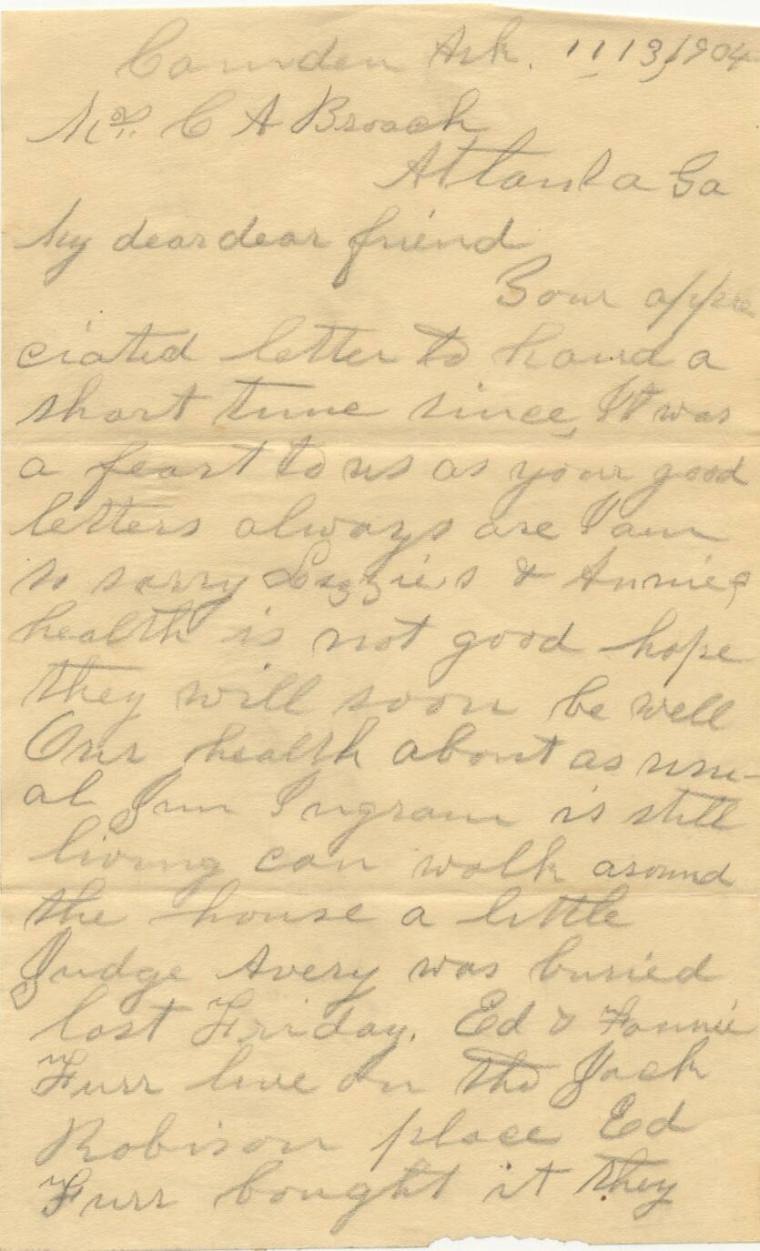 Camden Ark. 11 13/1904
Mr. C A Broach
Atlanta Ga
My dear dear friend
Your appre
ciated letter to hand a
short time since, It was
a feast to us as your good
letters always are I am
so sorry Lizzies & Annies
health is not good hope
they will soon be well
Our health about as usu-
al Jim Ingram is still
living can walk around
the house a little
Judge Avery was buried
last Friday. Ed & Fannie
Furr live on the Jack
Robison place Ed
Furr bought it they